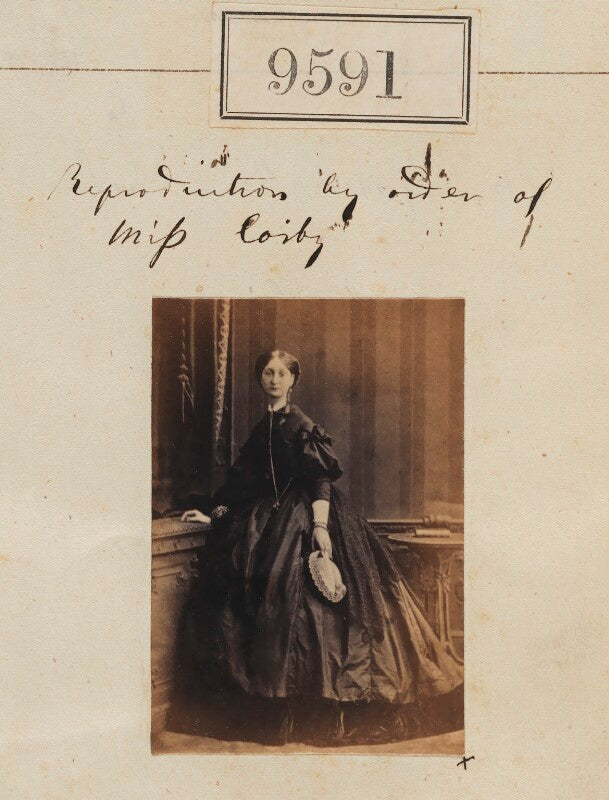 9591
Reproduction by order of
Miss Corby
x